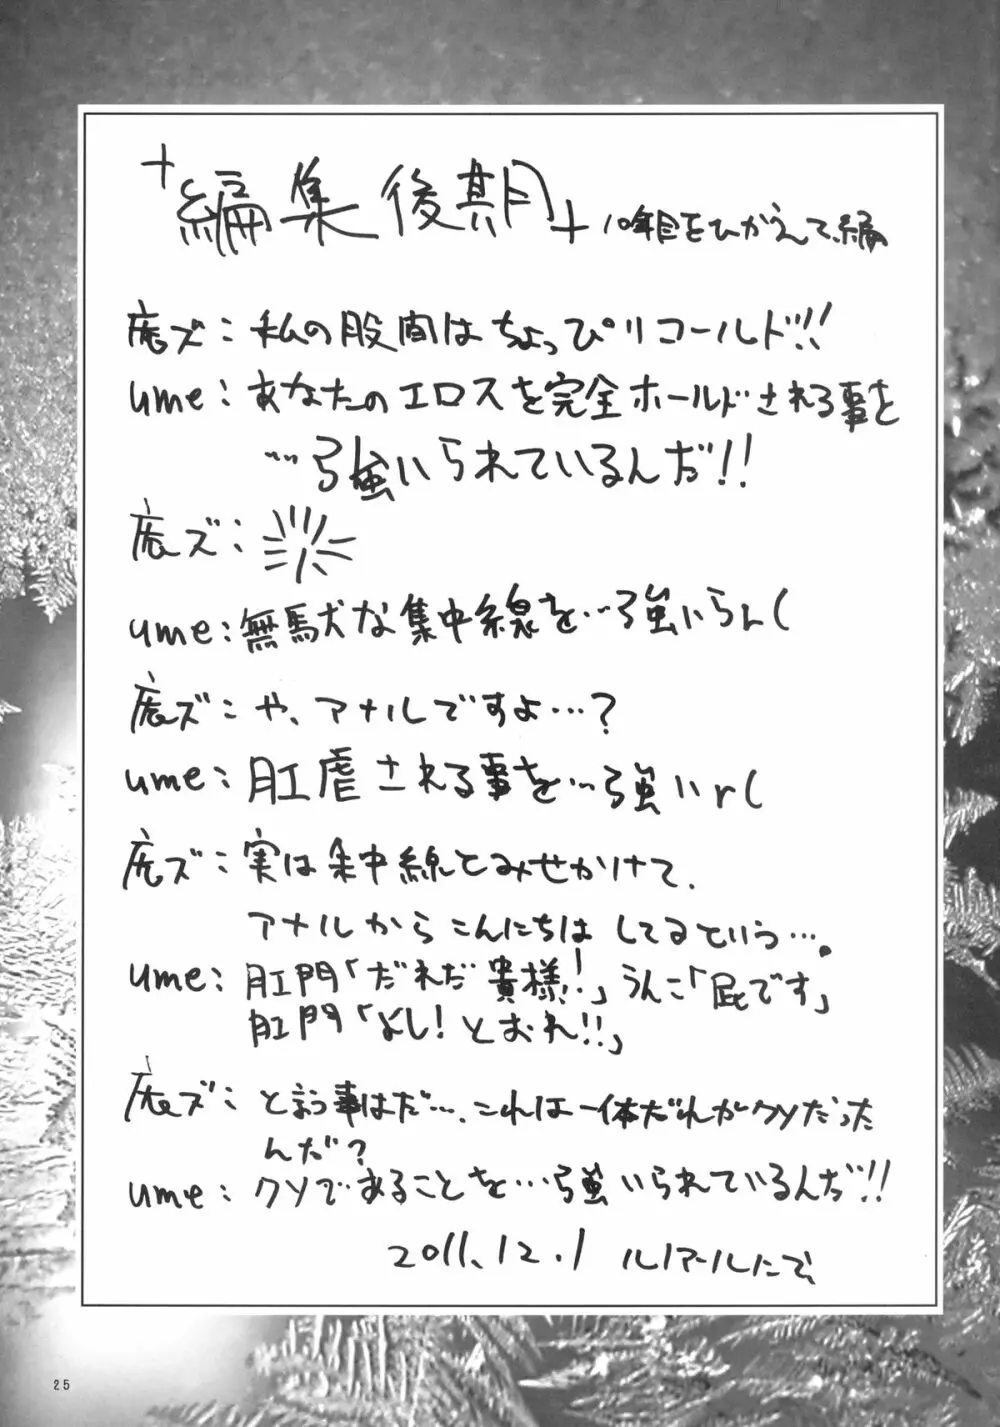 +編集後期+ 10年目をひかえて、編
鹿ズ：私の股間はちょっぴりコールド!!!
ume：あなたのエロスを完全ホールドされる事を
…強いられているんだ!!
鹿ズ：
ume：無駄な集中線を…強いらん(
鹿ズ：や、アナルですよ…？
ume：肛虐される事を…強いr(
鹿ズ：実は集中線とみせかけて、
アナルからこんにちはしてるという…。
ume：肛門「だれだ貴様!!」うんこ「屁です」
肛門「よし!とおれ!!」
鹿ズ：と言う事はだ…、これは一体だれがクソだった
んだ？
ume：クソであることを…強いられているんだ!!
2011.12.1 ルノアールにて、
25